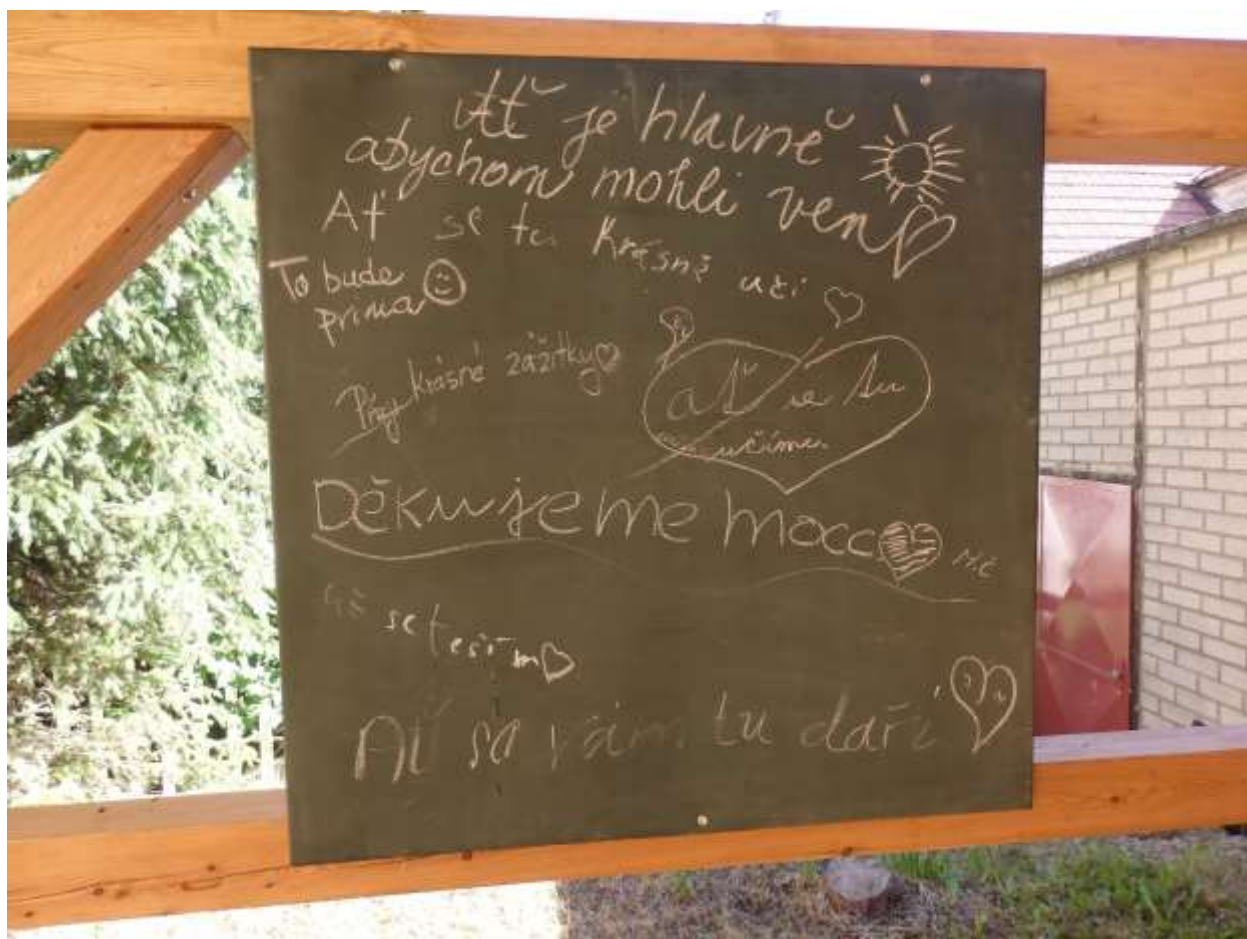 Ať je hlavně
abychom mohli ven
Ať se tu krásně učí
To bude
prima
krásné zážitky
ať se tu
učíme.
Děkujeme mocc
se těším
Ať se vám tu daří